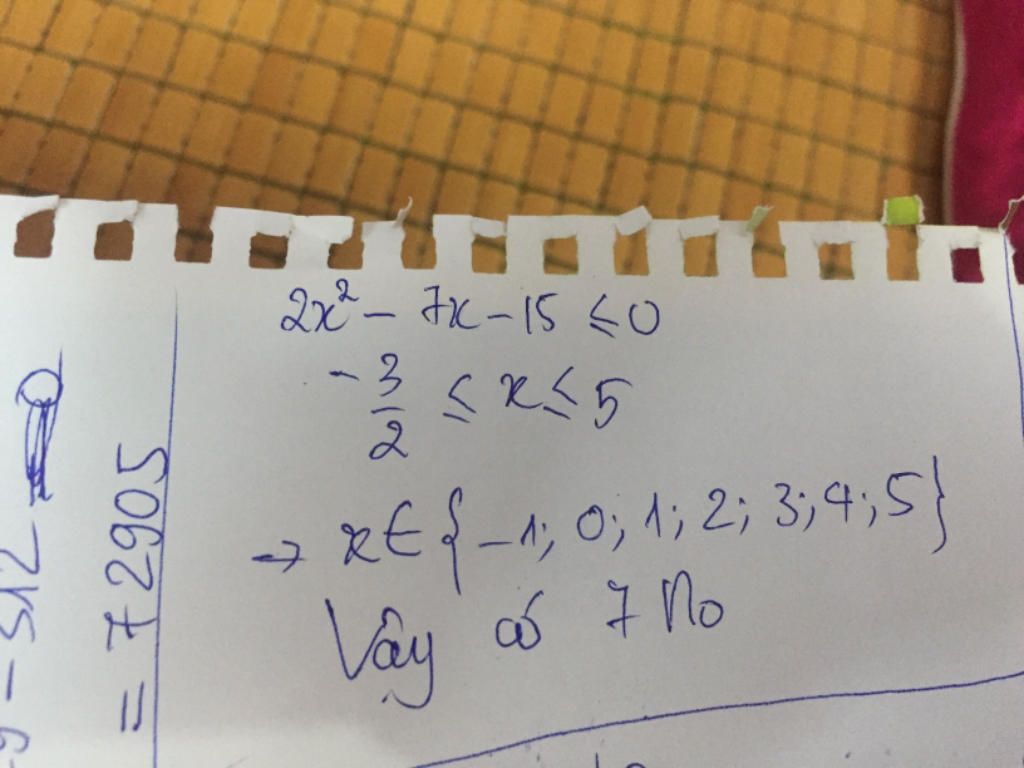 2x² - 7x - 15 ≤ 0
-3/2 ≤ x ≤ 5
→ x ∈ {-1; 0; 1; 2; 3; 4; 5}
Vậy có 7 No
= 72905
9 - 512